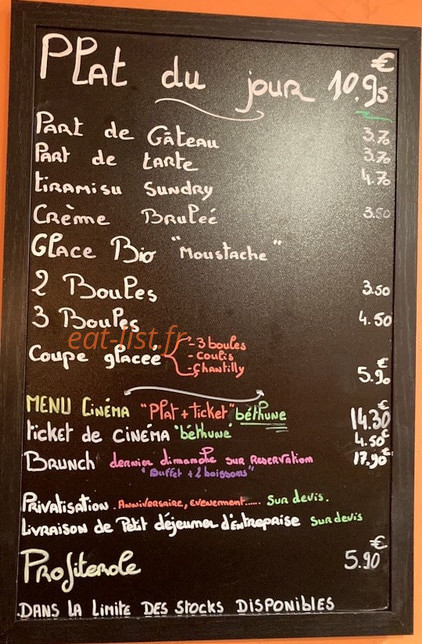 Plat du jour 10.95 €
Part de Gâteau 3.70
Part de tarte 3.70
tiramisu Sundry 4.70
Crème Bruleé 3.50
Glace Bio "Moustache"
2 Boules 3.50
3 Boules 4.50
eat-list.fr
Coupe glaceé - 3 boules - coulis - chantilly 5.90 €
MENU Cinéma "Plat + ticket" béthune 14.30 €
ticket de cinéma "béthune" 4.50 €
Brunch dernier dimanche sur Reservation 17.90 €
"Buffet + 2 boissons"
Privatisation . Anniversaire, evenement..... Sur devis.
Livraison de Petit déjeuner d'Entreprise Sur devis
Profiterole 5.90 €
DANS LA LIMITE DES STOCKS DISPONIBLES